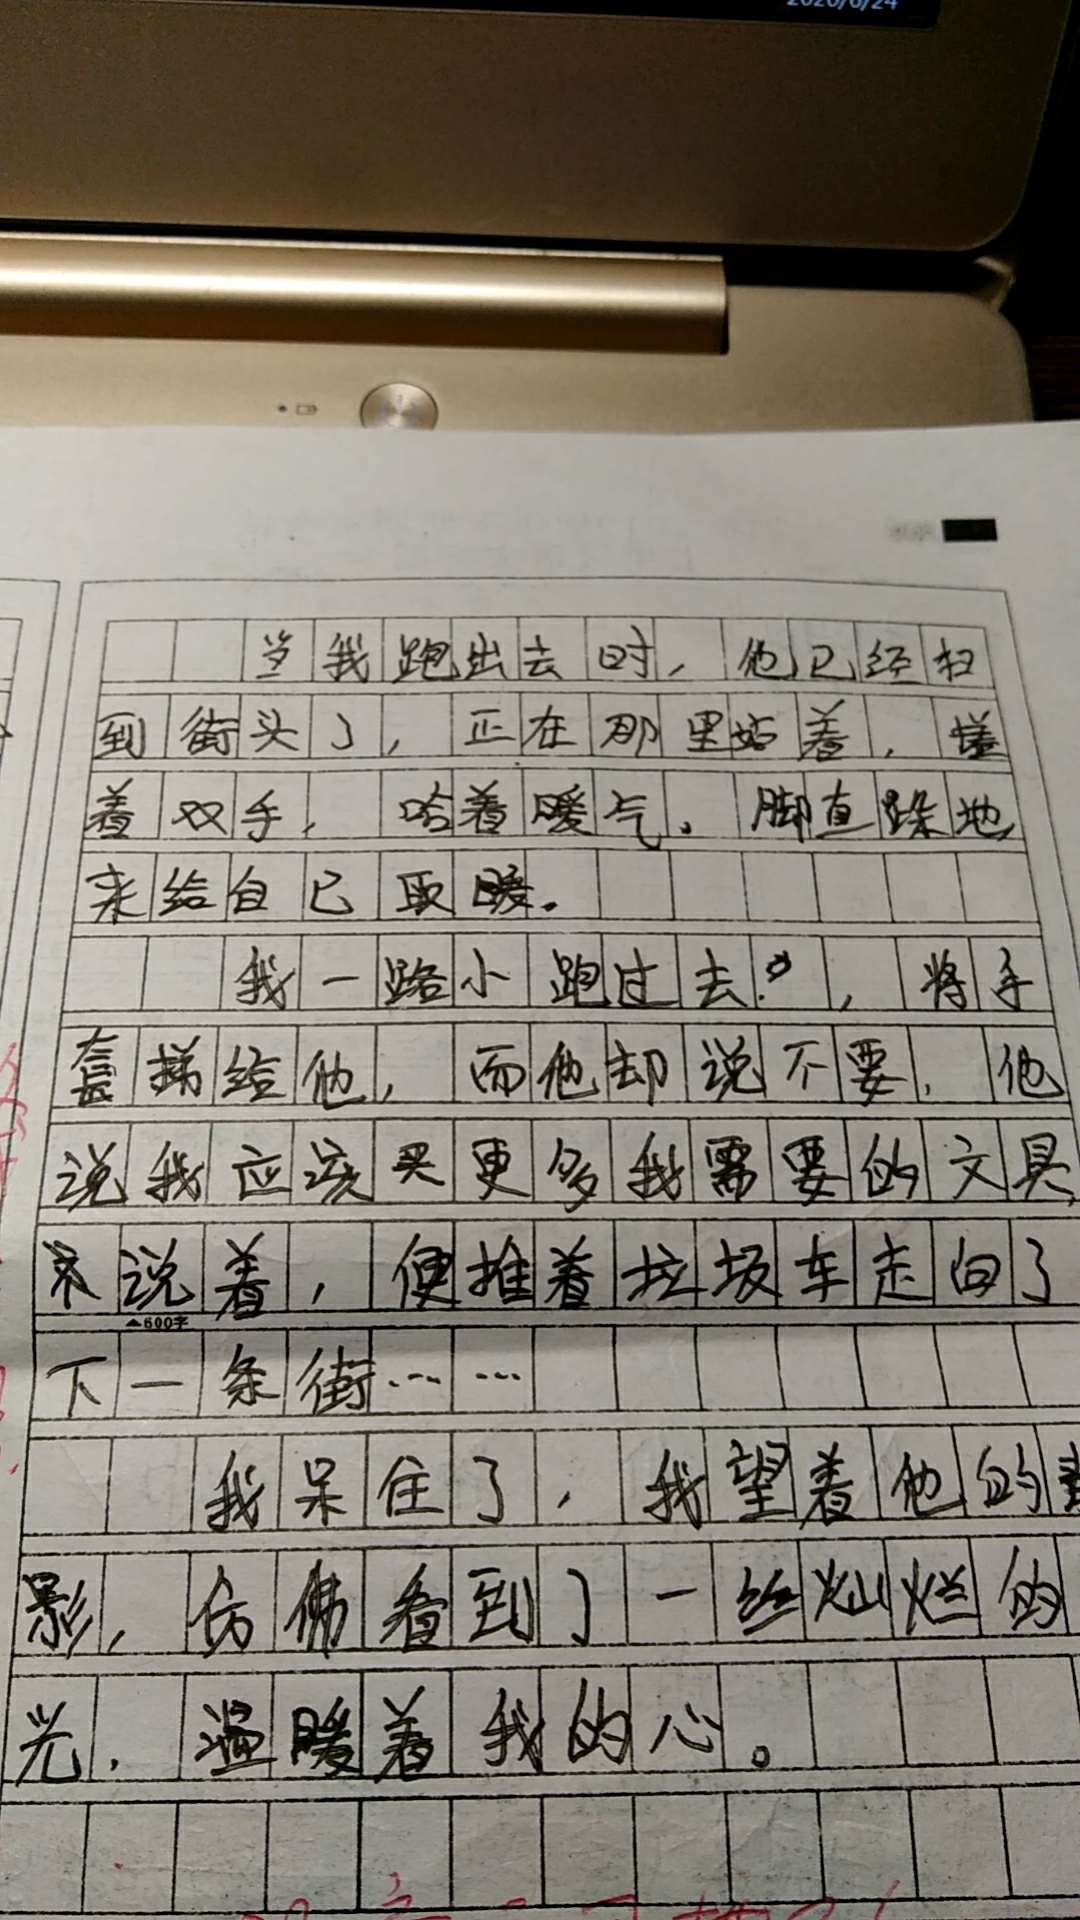 2020/6/24
当我跑出去时，他已经扫
到街头了，正在那里站着，搓
着双手，哈着暖气。脚直跺地
来给自已取暖。
我一路小跑过去，将手
套递给他，而他却说不要，他
说我应该买更多我需要的文具，
说着，便推着垃圾车走向了
▲600字
下一条街……
我呆住了，我望着他的
影，仿佛看到了一丝灿烂的
光，温暖着我的心。